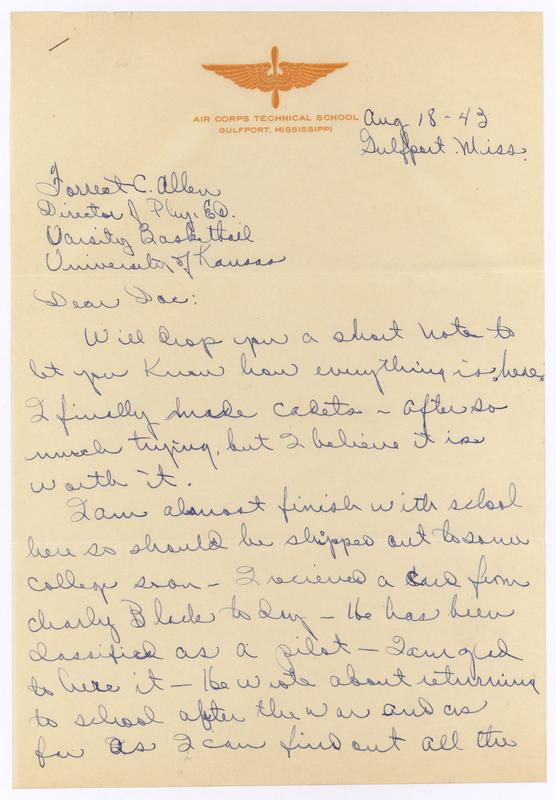 AIR CORPS TECHNICAL SCHOOL
GULFPORT, MISSISSIPPI
Aug 18-43
Gulfport. Miss.
Forrest C. Allen
Director of Phy. ED.
Varsity Basketball
University of Kansas
Dear Doc:
Will drop you a short note to
let you Know how everything is here.
I finally made cadets - after so
much trying, but I believe it is
worth it.
I am almost finish with school
here so should be shipped out to some
college soon - I recieved a card from
Charly Black today - He has been
classified as a pilot - I am glad
to here it - He wrote about returning
to school after the war and as
far as I can find out all the